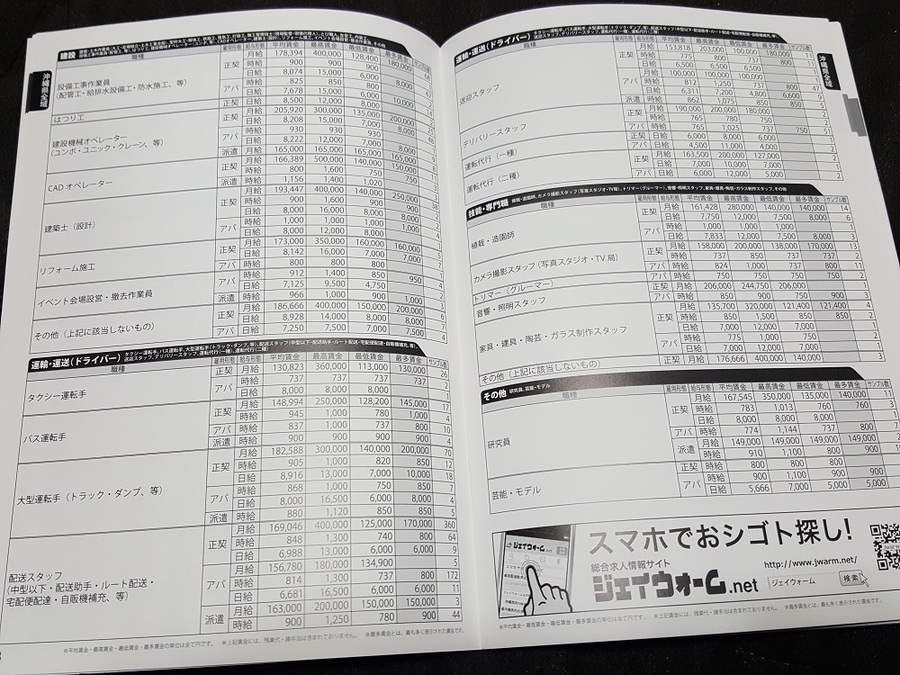 建設
職種 雇用形態 給与形態 平均賃金 最高賃金 最低賃金 最多賃金 サンプル数
沖縄県全域
設備工事作業員
(配管工・給排水設備工・防水施工、等)
正契 月給 178,394 400,000 128,400 180,000
時給 900 900 900
日給 8,074 15,000 6,000 8,000
アパ 時給 825 850 800
日給 7,678 15,000 6,000
はつり工 正契 日給 8,500 12,000 8,000
建設機械オペレーター
(ユンボ・ユニック・クレーン、等)
正契 月給 205,920 300,000 135,000 200,000
日給 8,208 15,000 7,000 8,000
アパ 時給 930 930 930
日給 8,222 12,000 7,000
派遣 月給 165,000 165,000 165,000 165,000
CADオペレーター
正契 月給 166,389 500,000 140,000 150,000
時給 800 1,600 750
派遣 時給 1,156 1,400 1,020
建築士(設計)
正契 月給 193,447 400,000 140,000 250,000
時給 900 1,600 900
日給 8,000 16,000 8,000
アパ 時給 1,000 15,000 1,000
日給 8,000 12,000 8,000
リフォーム施工
正契 月給 173,000 350,000 160,000 160,000
日給 8,142 16,000 7,000 7,000
アパ 時給 800 800 800
イベント会場設営・撤去作業員
アパ 時給 912 1,400 850 950
日給 7,125 9,500 4,750
派遣 時給 966 1,000 900 1,000
その他(上記に該当しないもの)
正契 月給 186,666 400,000 150,000 200,000
日給 8,928 14,000 8,000 8,000
アパ 日給 7,250 7,500 7,000 7,500
運輸・運送(ドライバー)
職種 雇用形態 給与形態 平均賃金 最高賃金 最低賃金 最多賃金 サンプル数
タクシー運転手
正契 月給 130,823 360,000 113,000 130,000 26
アパ 時給 737 737 737
日給 8,000 8,000 8,000
バス運転手
正契 月給 148,994 250,000 128,200 145,000 17
時給 945 1,000 780 1,000 4
アパ 時給 837 1,000 737 800 10
派遣 時給 900 900 900 900 4
大型運転手(トラック・ダンプ、等)
正契 月給 182,588 300,000 140,000 200,000 70
時給 905 1,000 820 850 12
日給 8,916 13,000 7,000 10,000 18
アパ 時給 868 1,000 750 850 7
日給 8,000 16,500 6,000 8,000 4
派遣 時給 880 1,120 850 850 5
配送スタッフ
(中型以下・配送助手・ルート配送・
宅配便配達・自販機補充、等)
正契 月給 169,046 400,000 125,000 170,000 360
時給 848 1,300 740 800 64
日給 6,988 13,000 6,000 6,000 9
アパ 月給 156,780 180,000 134,900 5
時給 814 1,300 737 800 172
日給 6,681 16,500 6,000 6,000 11
派遣 月給 163,000 200,000 150,000 150,000 3
時給 900 1,250 790 900 44
※平均賃金・最高賃金・最低賃金・最多賃金の単位は全て円です。 ※上記賃金には、残業代・諸手当は含まれておりません。 ※最多賃金とは、最も多く表示された賃金です。
運輸・運送(ドライバー)
職種 雇用形態 給与形態 平均賃金 最高賃金 最低賃金 最多賃金 サンプル数
沖縄県全域
送迎スタッフ
正契 月給 153,818 203,000 100,000
時給 775 800 737 800
日給 6,500 6,500 6,500
アパ 月給 100,000 100,000 100,000
時給 812 1,250 737 800 47
日給 6,311 7,200 4,800 6,600
派遣 時給 862 1,075 850 850
デリバリースタッフ
正契 月給 190,000 200,000 180,000
時給 765 780 750
アパ 時給 765 1,025 737 750 51
運転代行(一種) アパ 日給 4,500 11,000 4,000
運転代行(二種)
正契 月給 163,500 200,000 127,000
アパ 日給 7,000 12,000 7,000
技能・専門職
職種 雇用形態 給与形態 平均賃金 最高賃金 最低賃金 最多賃金 サンプル数
植栽・造園師
正契 月給 161,428 280,000 140,000 140,000 14
日給 7,750 12,500 7,500 8,000 6
アパ 時給 1,000 1,000 1,000
日給 7,833 12,000 7,500 8,000 3
カメラ撮影スタッフ(写真スタジオ・TV局)
正契 月給 158,000 200,000 138,000 170,000 13
時給 737 850 737 737
アパ 時給 824 1,000 737 800 11
トリマー(グルーマー) アパ 時給 750 750 750 750
音響・照明スタッフ
正契 月給 206,000 244,750 206,000
アパ 時給 850 900 750 900 3
家具・建具・陶芸・ガラス制作スタッフ
正契 月給 135,700 320,000 121,400 121,400 4
時給 850 1,500 850
日給 7,000 12,000 7,000
アパ 時給 775 1,000 750
日給 7,000 12,000 7,000
その他(上記に該当しないもの) 正契 月給 176,666 400,000 140,000 3
その他 研究員、芸能・モデル
職種 雇用形態 給与形態 平均賃金 最高賃金 最低賃金 最多賃金 サンプル数
研究員
正契 月給 167,545 350,000 135,000 140,000 11
時給 783 1,013 760 760 3
日給 8,000 8,000 8,000
アパ 時給 774 1,144 737 800
派遣 月給 149,000 149,000 149,000 149,000
時給 910 1,100 800 900
芸能・モデル
正契 時給 800 800 800
アパ 時給 900 1,100 900 900
日給 5,666 7,000 5,000 5,000
スマホでおシゴト探し!
総合求人情報サイト
ジェイウォーム.net
http://www.jwarm.net/
ジェイウォーム 検索
※平均賃金・最高賃金・最低賃金・最多賃金の単位は全て円です。 ※上記賃金には、残業代・諸手当は含まれておりません。 ※最多賃金とは、最も多く表示された賃金です。